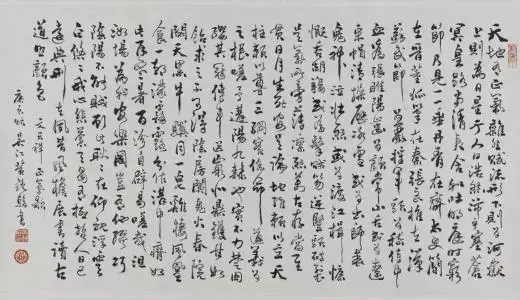 天地有正氣雜然賦流形下則為河嶽
上則為日星於人曰浩然沛乎塞蒼
冥皇路當清夷含和吐明庭時窮
節乃見一一垂丹青在齊太史簡
在晉董狐筆在秦張良椎在漢
蘇武節為嚴將軍頭為嵇侍中
血為張睢陽齒為顏常山舌或為遼
東帽清操厲冰雪或為出師表
鬼神泣壯烈或為渡江楫慷
慨吞胡羯或為擊賊笏逆豎頭破裂
是氣所磅礴凜烈萬古存當其
貫日月生死安足論地維賴以立天
柱賴以尊三綱實係命道義為
之根嗟予遘陽九隸也實不力楚囚
纓其冠傳車送窮北鼎鑊甘如
飴求之不可得陰房闃鬼火春院
閟天黑牛驥同一皂雞棲鳳凰
食一朝蒙霧露分作溝中瘠如
此再寒暑百沴自辟易嗟哉沮
洳場為我安樂國豈有他繆巧
陰陽不能賊顧此耿耿在仰視浮雲
白悠悠我心悲蒼天曷有極哲人日已
遠典刑在夙昔風簷展書讀古
道照顏色 文天祥正氣歌
秋吳江黃書